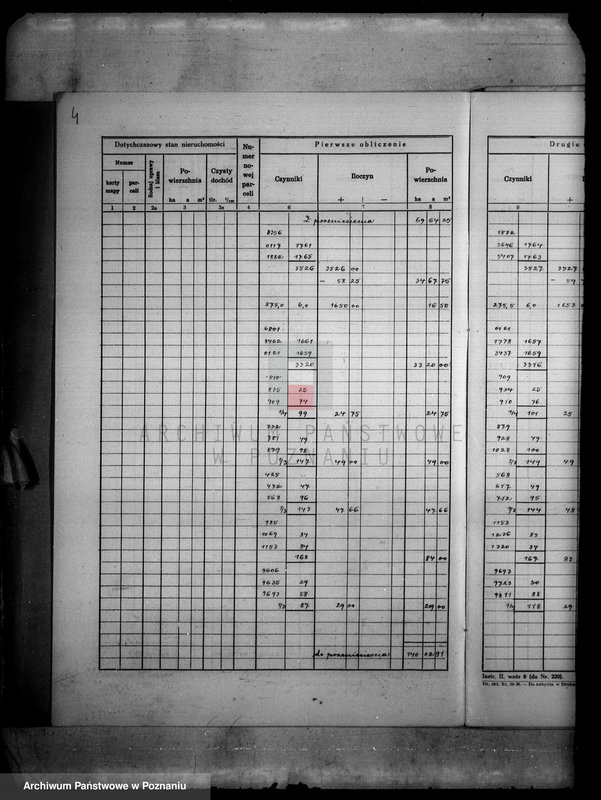 4
Dotychczasowy stan nieruchomości
Nu-
mer
no-
wej
par-
celi
Pierwsze obliczenie
Numer
karty mapy
par-
celi
Rodzaj uprawy i klasa
Po-
wierzchnia
ha a m²
Czysty dochód
tlr.
Czynniki
Iloczyn
+ | −
Po-
wierzchnia
ha a m²
1 2 2a 3 3a 4 6 7 8
Z przeniesienia 69 64 25
8356
0117 1761
1882 1765
3526 3526 00
− 58 25 34 67 75
275,0 6,0 1650 00 16 50
6801
8462 1661
0121 1659
3320 33 20 00
810
835 25
909 74
¼ 99 24 75 24 75
732
781 49
879 98
⅓ 147 49 00 49 00
425
472 47
568 96
⅓ 143 47 66 47 66
985
1069 84
1153 84
168 84 00
9606
9635 29
9693 58
⅓ 87 29 00 29 00
do przeniesienia 140 02 91
Drugie
Czynniki
+
9
1882
3646 1764
5409 1763
3527 3527
− 59
275,5 6,0 1653
0121
1778 1657
3437 1659
3316
909
934 25
910 76
¼ 101 25
879
928 49
1028 100
⅓ 149 49
568
617 49
712 95
⅓ 144 48
1153
1236 83
1320 84
167 83
9693
9723 30
9811 88
118 29
Instr. II, wzór 6 (do Nr. 220).
ARCHIWUM PAŃSTWOWE
W POZNANIU
Archiwum Państwowe w Poznaniu